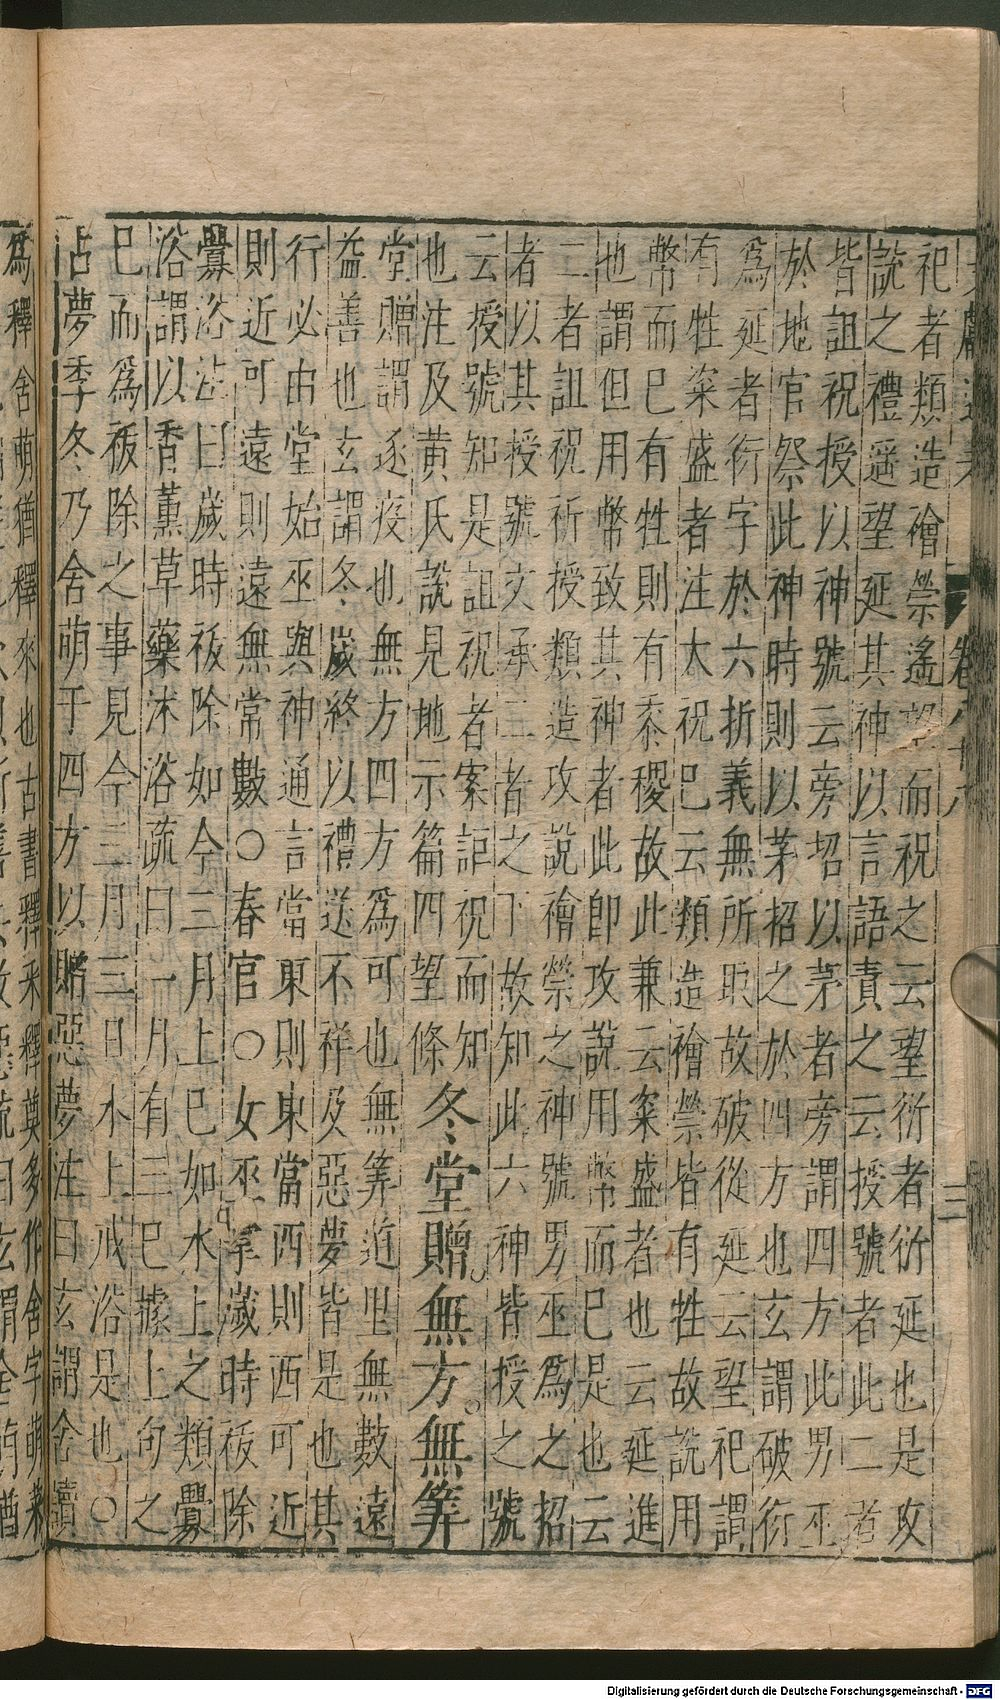 祀者類造禬禜遙望而祝之云望衍者衍延也是攻
說之禮遥望延其神以言語責之云授號者此二者
皆詛祝授以神號云旁招以茅者旁謂四方此男巫
於地官祭此神時則以茅招之於四方也玄謂破衍
爲延者衍字於六折義無所取故破從延云望祀謂
有牲粢盛者注大祝巳云類造禬禜皆有牲故說用
幣而巳有牲則有黍稷故此兼云粢盛者也云延進
也謂但用幣致其神者此即攻說用幣而巳是也云
二者詛祝所授類造攻說禬禜之神號男巫爲之招
者以其授號文承二者之下故知此六神皆授之號
云授號知是詛祝者案詛祝而知
也注及黃氏說見地示篇四望條
冬堂贈。無方。無筭
堂贈謂逐疫也無方四方爲可也無筭道里無數遠
益善也玄謂冬歲終以禮送不祥及惡夢皆是也其
行必由堂始巫與神通言當東則東當西則西可近
則近可遠則遠無常數〇春官〇女巫掌歲時祓除
釁浴注曰歲時祓除如今三月上巳如水上之類釁
浴謂以香薰草藥沐浴疏曰一月有三巳據上旬之
巳而爲祓除之事見今三月三日水上戒浴是也〇
占夢季冬乃舍萌于四方以贈惡夢注曰玄謂舍讀
爲釋舍萌猶釋來也古書釋來釋奠多作舍字萌來
卷八十八
三
Digitalisierung gefördert durch die Deutsche Forschungsgemeinschaft - DFG